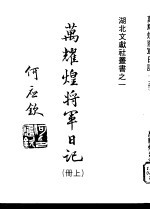 湖北文獻社叢書之一
萬耀煌將軍日記
(上冊)
何应欽